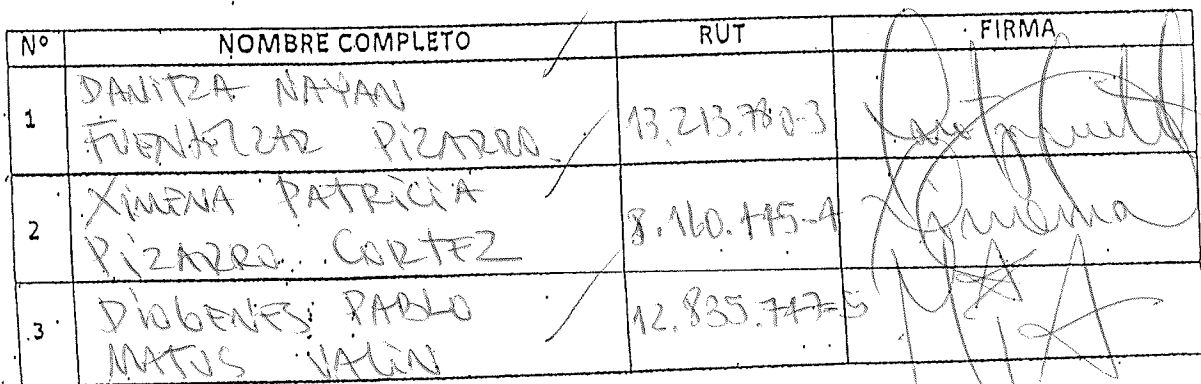 Nº NOMBRE COMPLETO RUT FIRMA
1 DANITZA NAYAN
FUENTEZAR PIZARRO 13.213.780-3
2 XIMENA PATRICIA
PIZARRO CORTEZ 8.160.145-4 Ximena
3 DIOGENES PABLO
MATUS VALIN 12.835.747-5